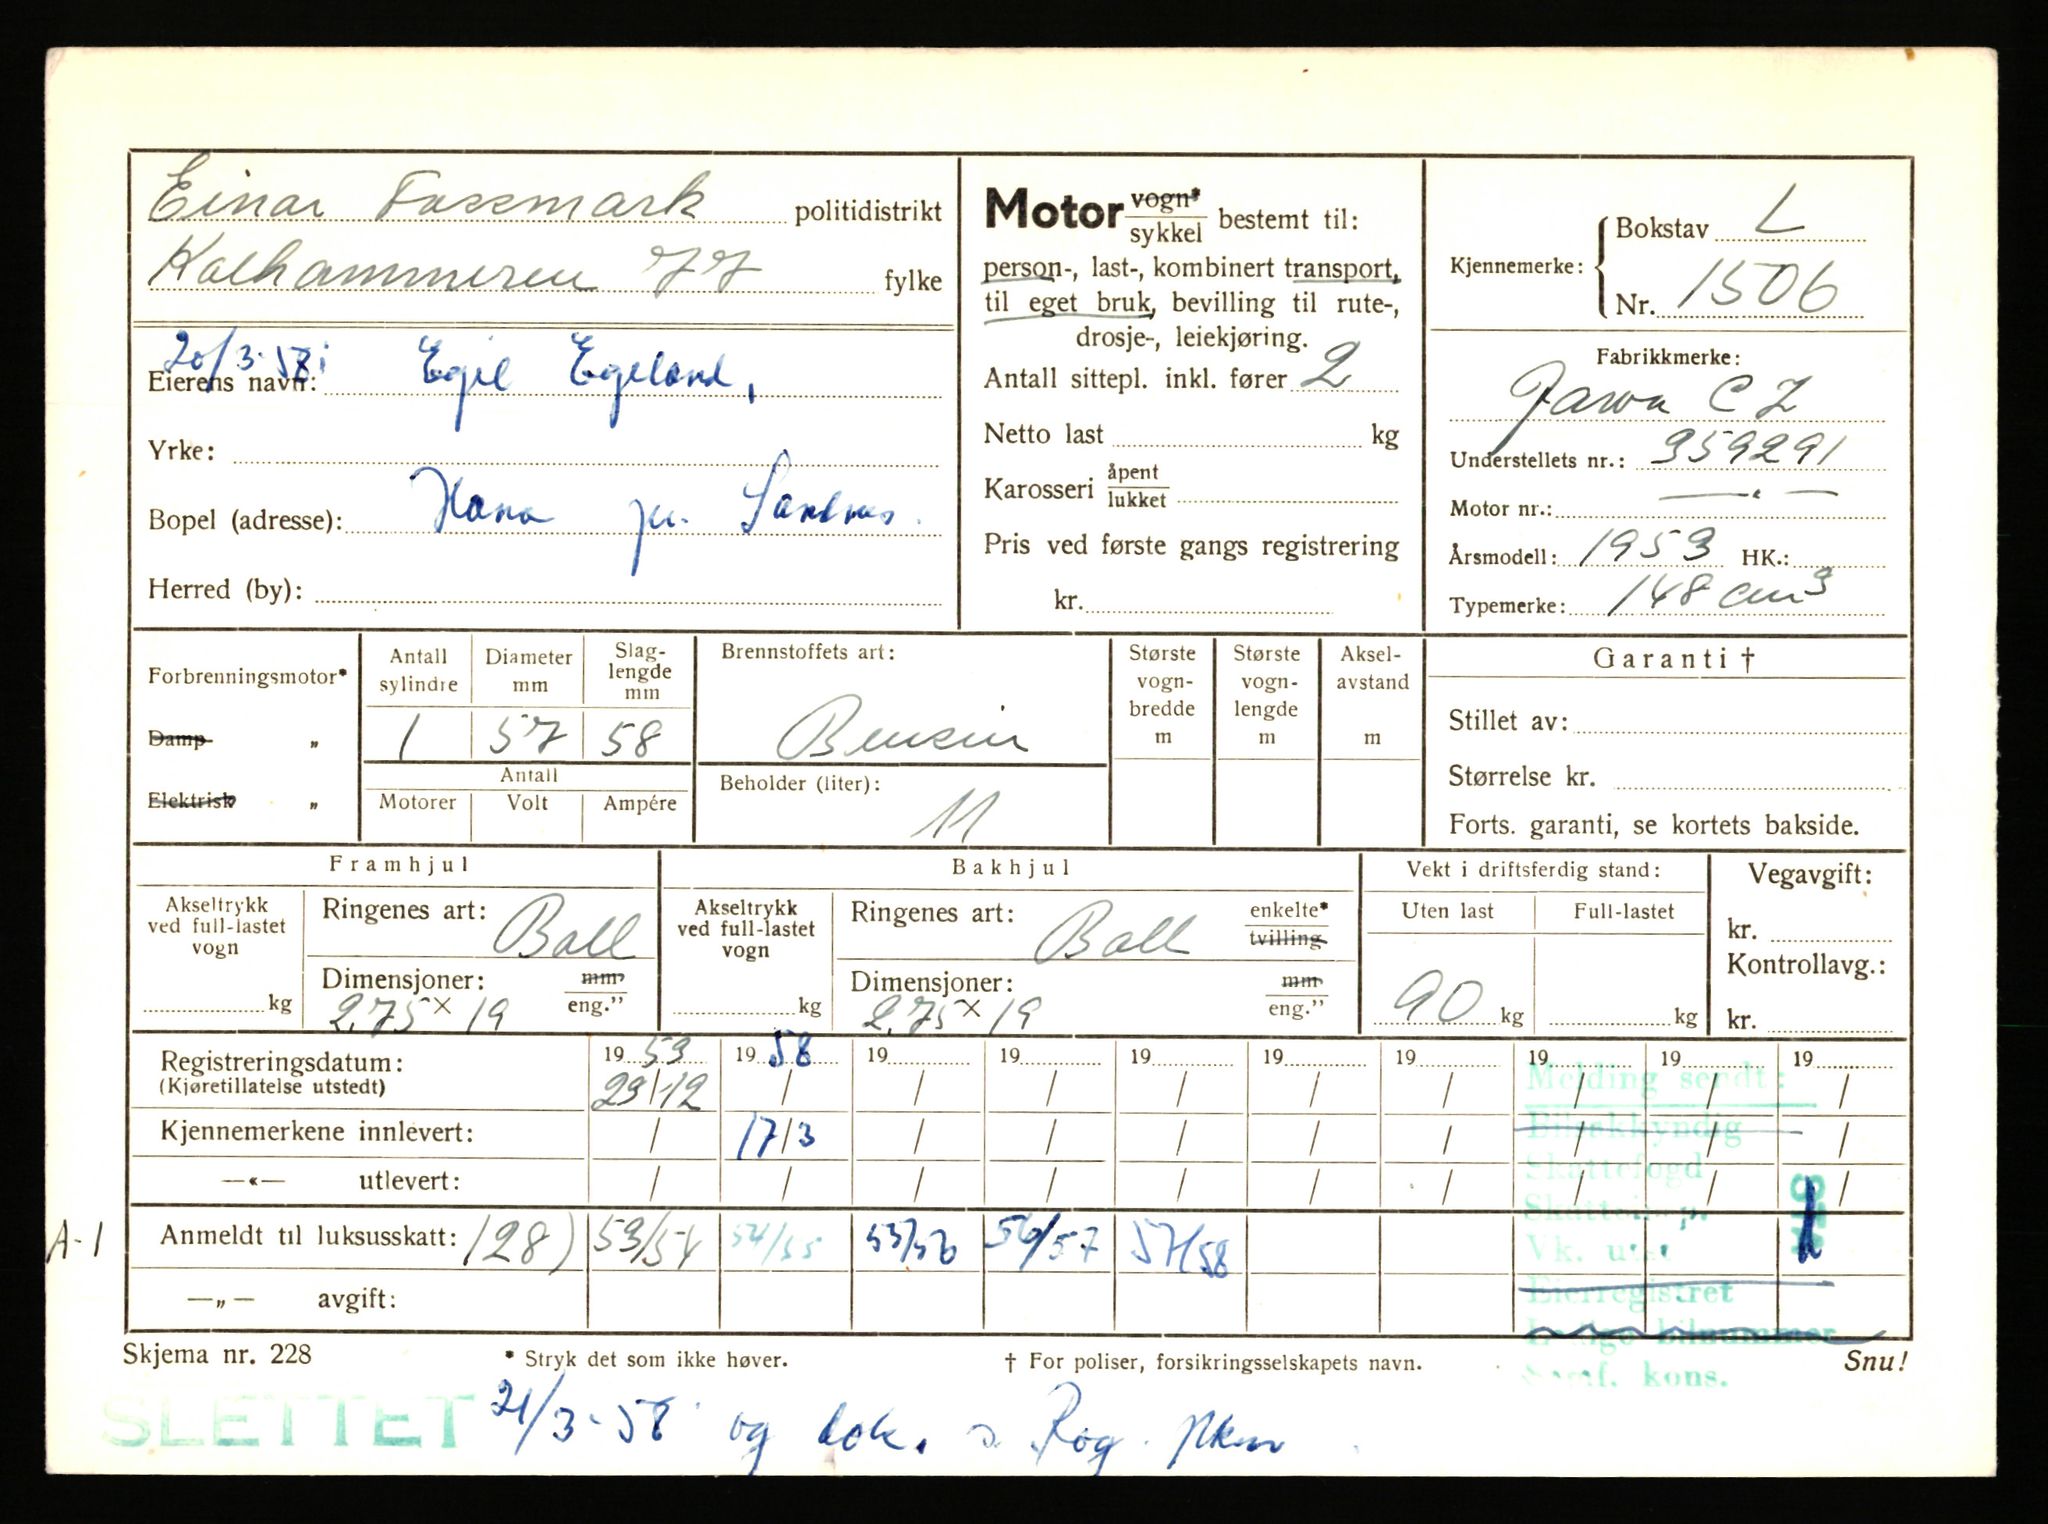 Einar Fossmark politidistrikt
Kalhammeren 77 fylke
20/3-58:
Eierens navn: Egil Egeland,
Yrke:
Bopel (adresse): Hana pr. Sandnes.
Herred (by):
Motor vogn* / sykkel bestemt til:
person-, last-, kombinert transport,
til eget bruk, bevilling til rute-,
drosje-, leiekjøring.
Antall sittepl. inkl. fører 2
Netto last kg
Karosseri åpent / lukket
Pris ved første gangs registrering
kr.
Kjennemerke: Bokstav L
Nr. 1506
Fabrikkmerke:
Jawa CZ
Understellets nr.: 359291
Motor nr.: — " —
Årsmodell: 1953 HK.:
Typemerke: 148 cm3
Forbrenningsmotor*
Damp "
Elektrisk "
Antall sylindre 1
Diameter mm 57
Slaglengde mm 58
Antall
Motorer Volt Ampére
Brennstoffets art:
Bensin
Beholder (liter):
11
Største vogn-bredde m
Største vogn-lengde m
Aksel-avstand m
Garanti †
Stillet av:
Størrelse kr.
Forts. garanti, se kortets bakside.
Framhjul
Akseltrykk ved full-lastet vogn kg
Ringenes art: Ball
Dimensjoner: mm / eng."
2,75 x 19
Bakhjul
Akseltrykk ved full-lastet vogn kg
Ringenes art: Ball enkelte* / tvilling
Dimensjoner: mm / eng."
2,75 x 19
Vekt i driftsferdig stand:
Uten last Full-lastet
90 kg kg
Vegavgift:
kr.
Kontrollavg.:
kr.
Registreringsdatum: 19 53 19 58 19 19 19 19 19 19 19 19
(Kjøretillatelse utstedt) 29/12 / / / / / / / / /
Kjennemerkene innlevert: / 17/3 / / / / / / / /
—«— utlevert: / / / / / / / / / /
A-1 Anmeldt til luksusskatt: 128) 53/54 54/55 55/56 56/57 57/58
—„— avgift:
Melding sendt:
Bilsakkyndig
Skattefogd
Eierregistret
Ledige bilnummer
kons.
Skjema nr. 228 * Stryk det som ikke høver. † For poliser, forsikringsselskapets navn. Snu!
SLETTET 21/3-58 og